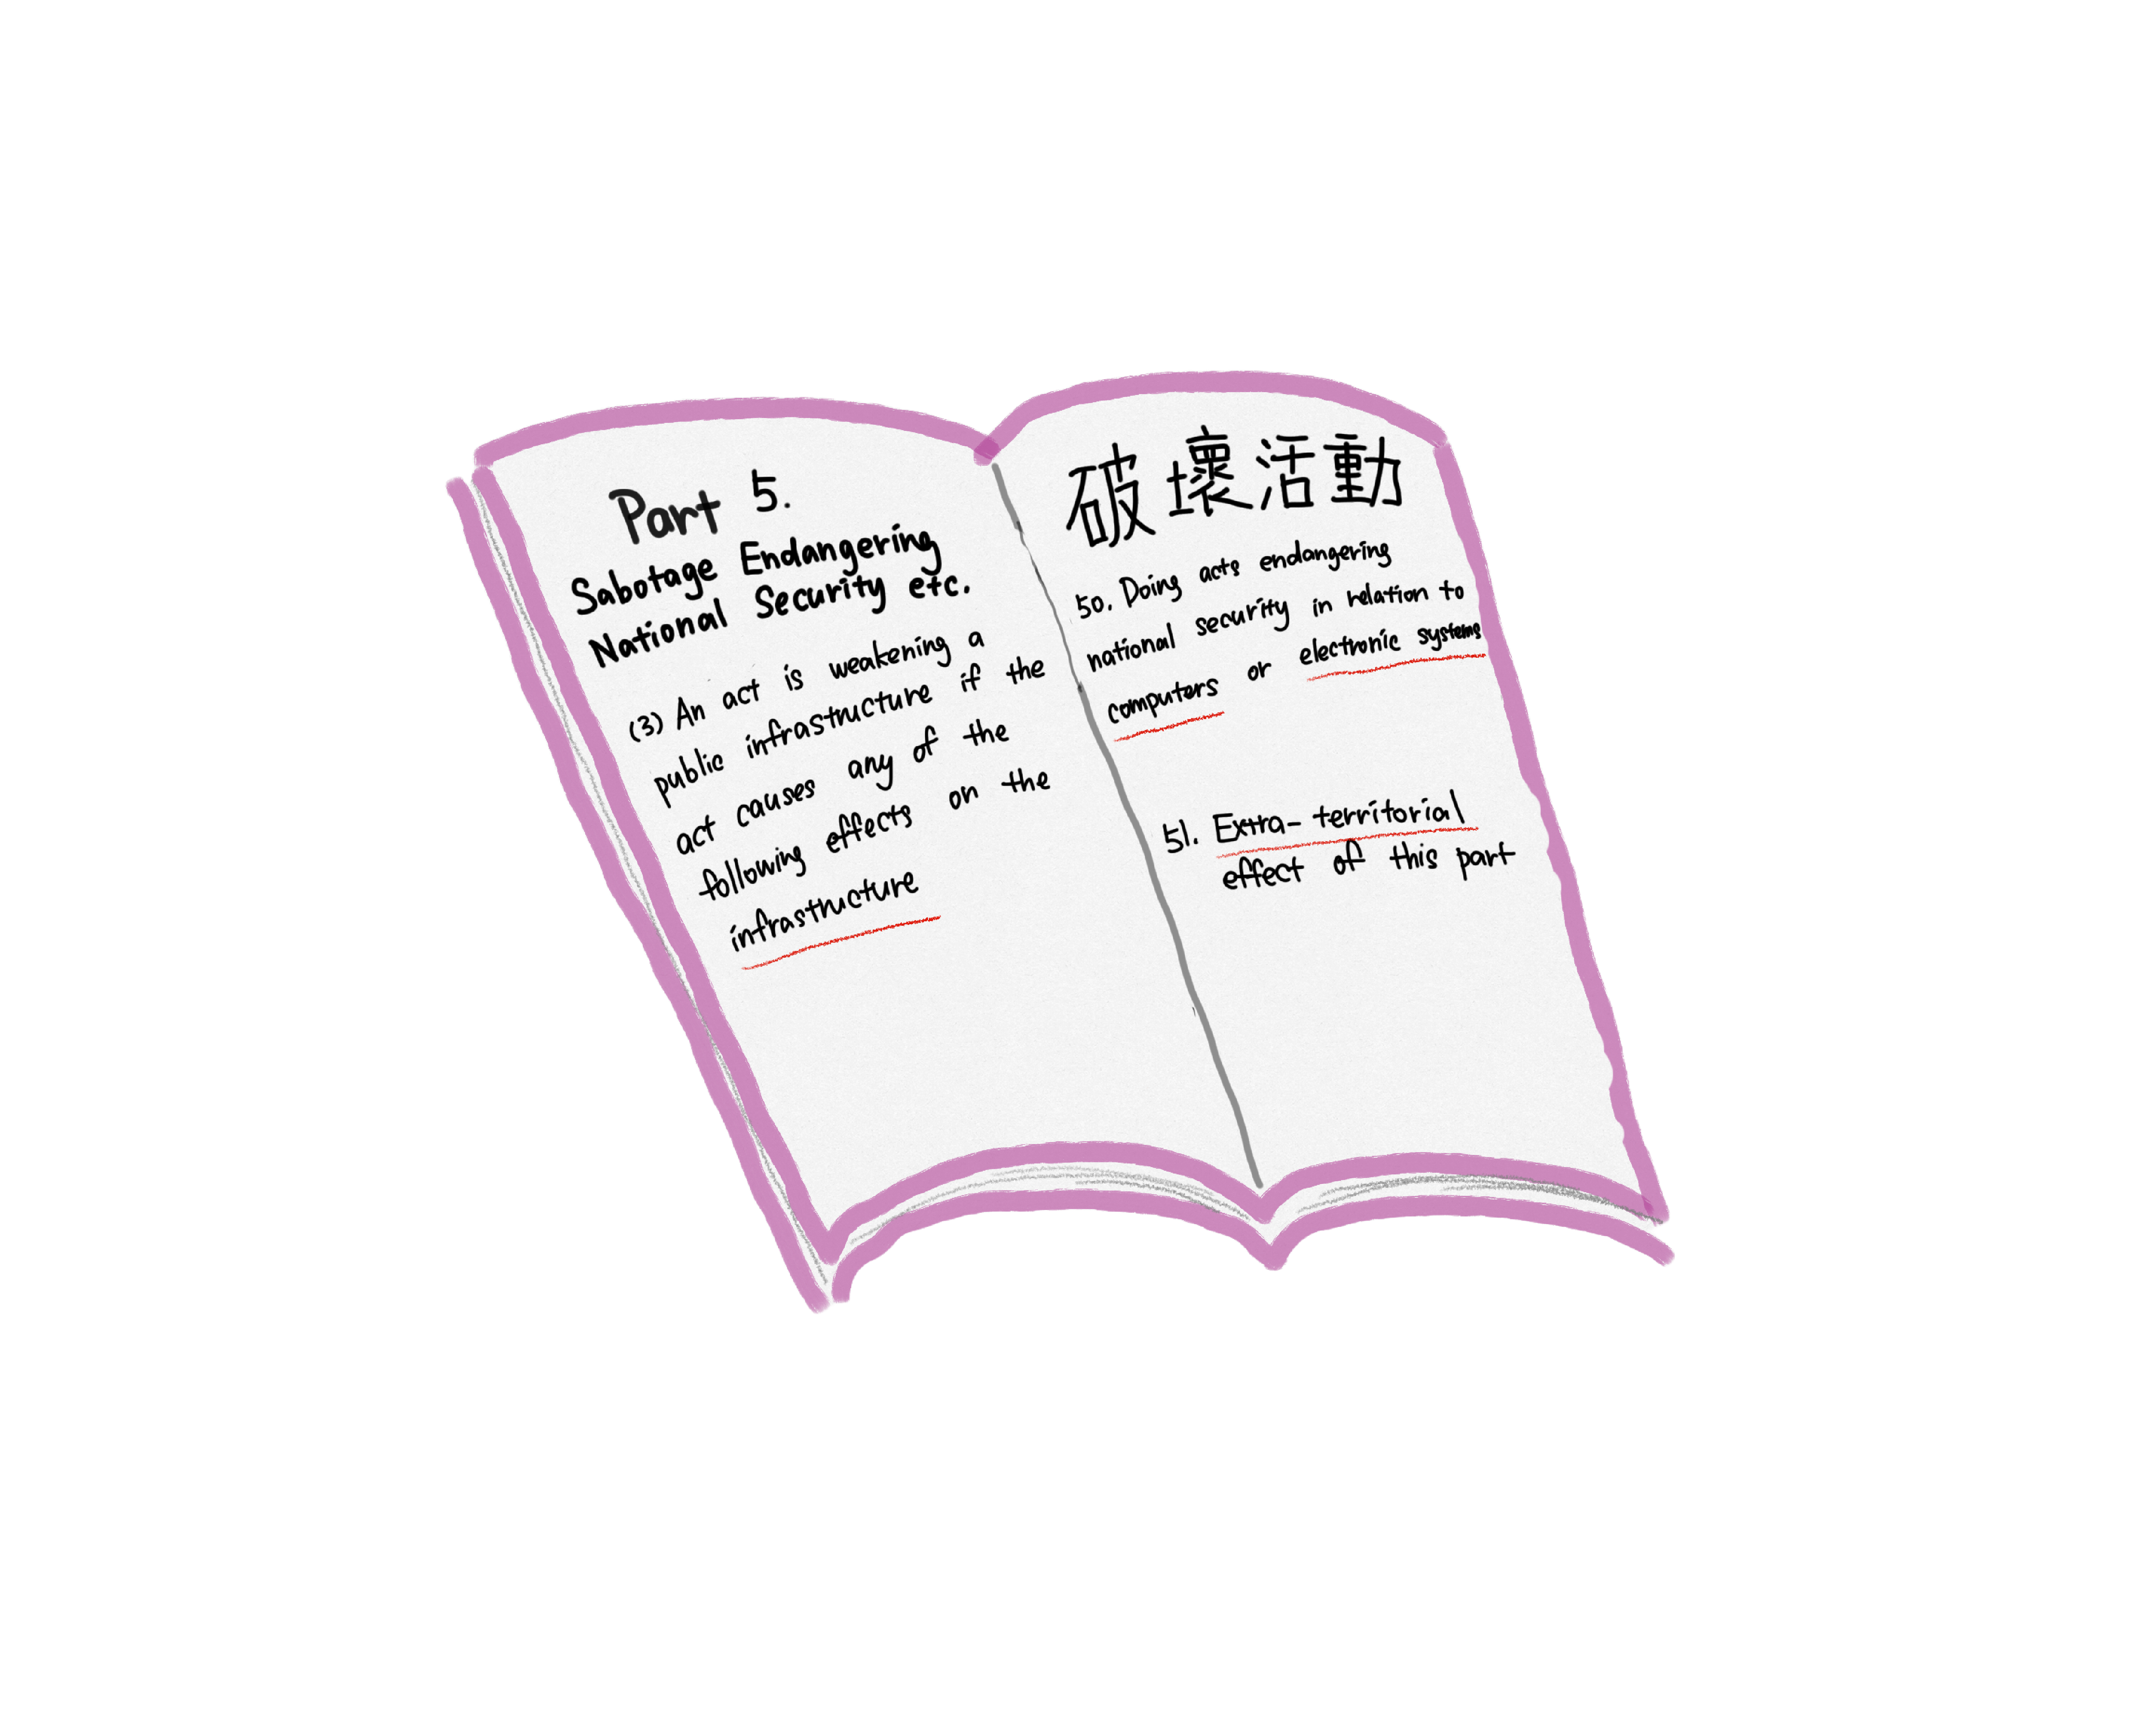 Part 5.
Sabotage Endangering
National Security etc.
(3) An act is weakening a
public infrastructure if the
act causes any of the
following effects on the
infrastructure
破壞活動
50. Doing acts endangering
national security in relation to
computers or electronic systems
51. Extra-territorial
effect of this part